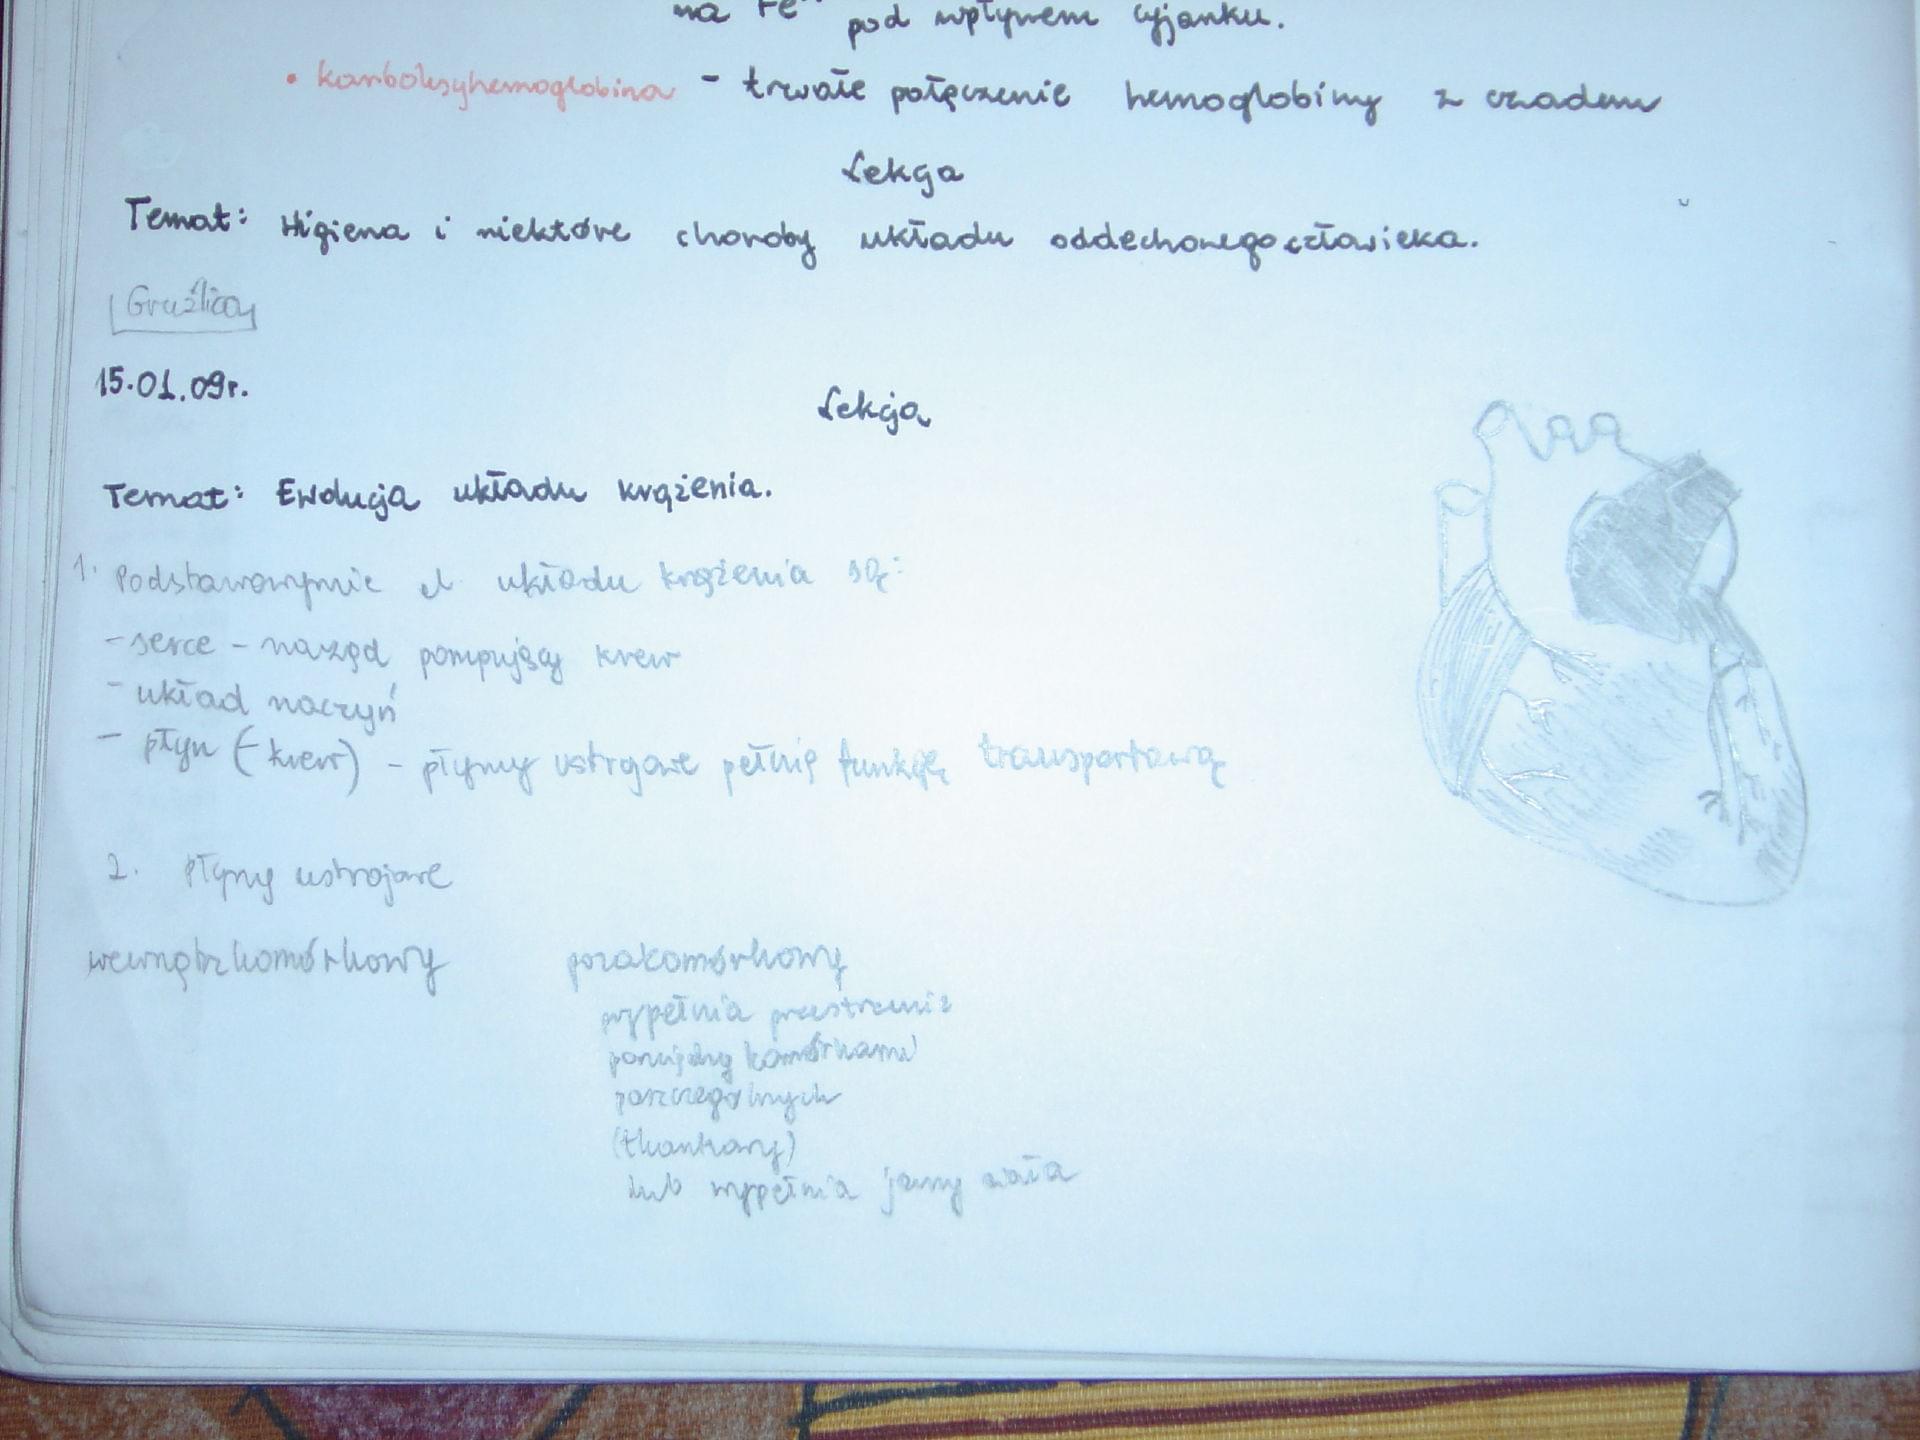 na Fe pod wpływem cyjanku.
• karboksyhemoglobina - trwałe połączenie hemoglobiny z czadem
Lekcja
Temat: Higiena i niektóre choroby układu oddechowego człowieka.
Gruźlica
15.01.09r.
Lekcja
Temat: Ewolucja układu krążenia.
1. Podstawowymi el. układu krążenia są:
- serce - narząd pompujący krew
- układ naczyń
- płyn (- krew) - płyny ustrojowe pełnią funkcję transportową
2. Płyny ustrojowe
wewnątrzkomórkowy pozakomórkowy
wypełnia przestrzenie
pomiędzy komórkami
poszczególnych
(tkankowy)
lub wypełnia jamy ciała